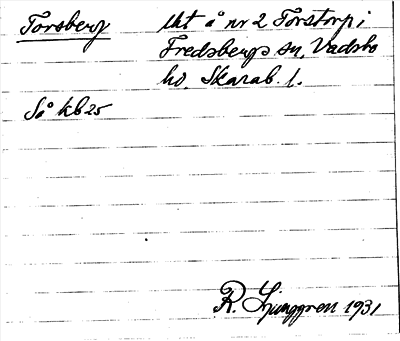 Torsberg
lht å nr 2 Torstorp i
Fredsbergs sn, Vadsbo
hd, Skarab. l.
Så kb 25
R. Ljunggren 1931